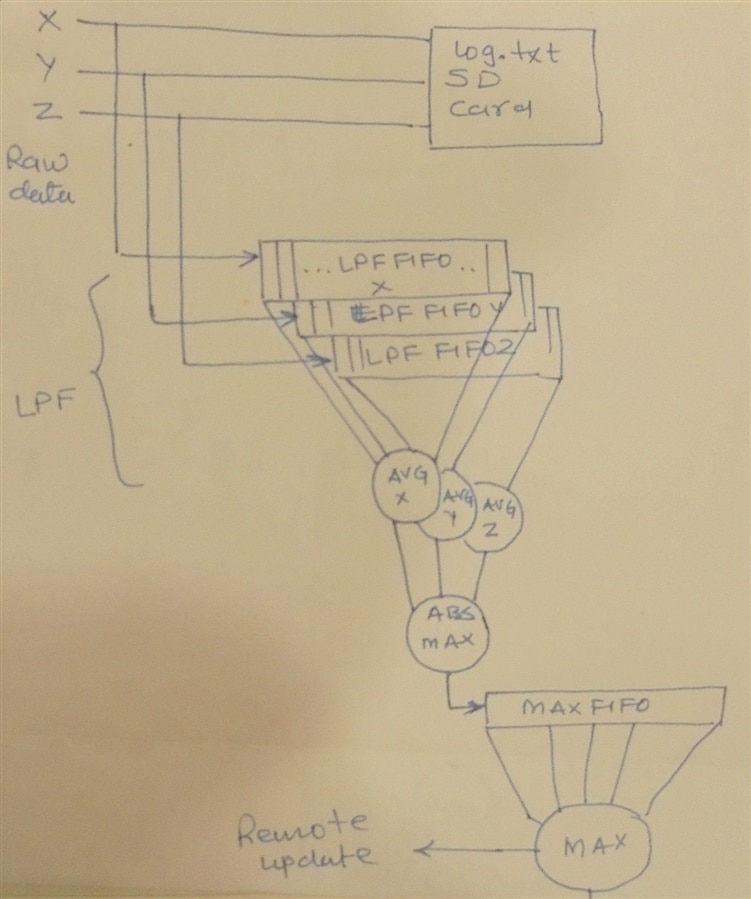 X
Y
Z
Raw
data
Log.txt
SD
Card
...LPF FIFO..
X
LPF FIFO Y
LPF FIFO Z
LPF
AVG
X
AVG
Y
AVG
Z
ABS
MAX
MAX FIFO
MAX
Remote
update